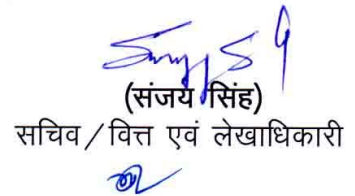 (संजय सिंह)
सचिव/वित्त एवं लेखाधिकारी